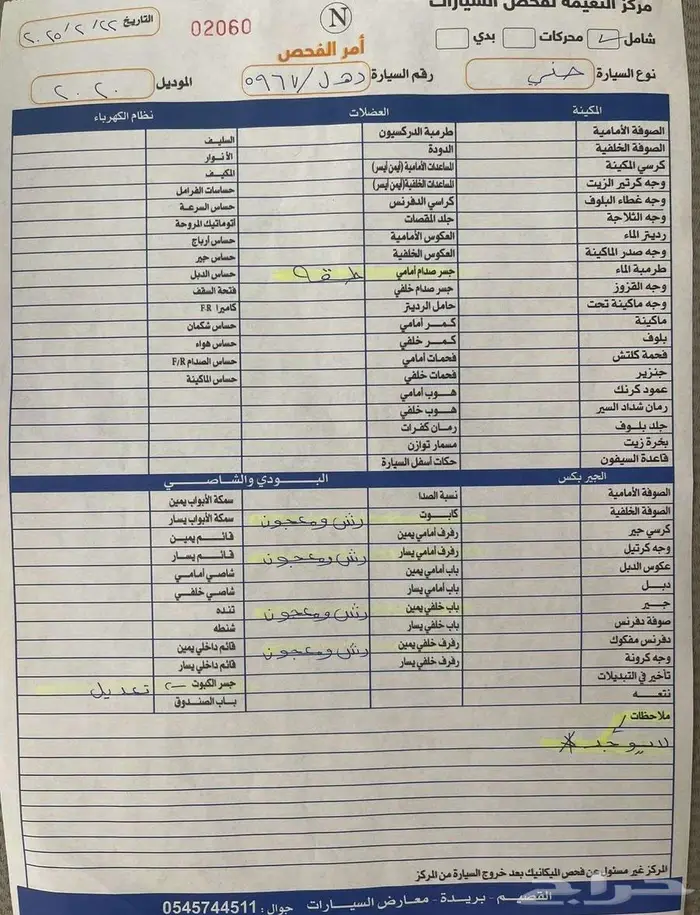 مركز النعيمة لفحص السيارات
N
02060
التاريخ ٢٠٢٥/٢/٢٢
أمر الفحص
شامل محركات بدي
نوع السيارة رقم السيارة د هـ ل / ٥٩٦٧ الموديل ٢٠٢٠
المكينة العضلات نظام الكهرباء
الصوفة الأمامية طرمبة الدركسيون السليف
الصوفة الخلفية الدودة الأنوار
كرسي المكينة المساعدات الأمامية (أيمن أيسر) المكيف
وجه كرتير الزيت المساعدات الخلفية (أيمن أيسر) حساسات الفرامل
وجه غطاء البلوف كراسي الدفرنس حساس السرعة
وجه الثلاجة جلد المقصات أتوماتيك المروحة
رديتر الماء العكوس الأمامية حساس أرباج
وجه صدر الماكينة العكوس الخلفية حساس جير
طرمبة الماء جسر صدام أمامي حساس الدبل
وجه القزوز جسر صدام خلفي فتحة السقف
وجه ماكينة تحت حامل الرديتر كاميرا F.R
ماكينة كمر أمامي حساس شكمان
بلوف كمر خلفي حساس هواء
فحمة كلتش فحمات أمامي حساس الصدام F/R
جنزير فحمات خلفي حساس الماكينة
عمود كرنك هوب أمامي
رمان شداد السير هوب خلفي
جلد بلوف رمان كفرات
بخرة زيت مسمار توازن
قاعدة السيفون حكات أسفل السيارة
الجير بكس البودي والشاصي
الصوفة الأمامية نسبة الصدا سمكة الأبواب يمين
الصوفة الخلفية كابوت رش ومعجون سمكة الأبواب يسار
كرسي جير رفرف أمامي يمين قائم يمين
وجه كرتيل رفرف أمامي يسار رش ومعجون قائم يسار
عكوس الدبل باب أمامي يمين شاصي أمامي
دبل باب أمامي يسار شاصي خلفي
جير باب خلفي يمين رش ومعجون تنده
صوفة دفرنس باب خلفي يسار شنطه
دفرنس مفكوك رفرف خلفي يمين رش ومعجون قائم داخلي يمين
وجه كرونة رفرف خلفي يسار قائم داخلي يسار
تأخير في التبديلات جسر الكبوت تعديل
نتعه باب الصندوق
ملاحظات
لا يوجد
المركز غير مسئول عن فحص الميكانيك بعد خروج السيارة من المركز
القصيم - بريدة - معارض السيارات جوال : 0545744511
حراج